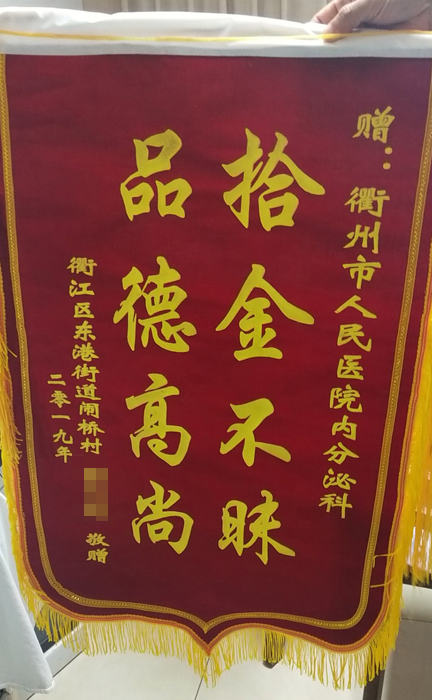 赠：衢州市人民医院内分泌科
拾金不昧
品德高尚
衢江区东港街道闹桥村 敬赠
二零一九年